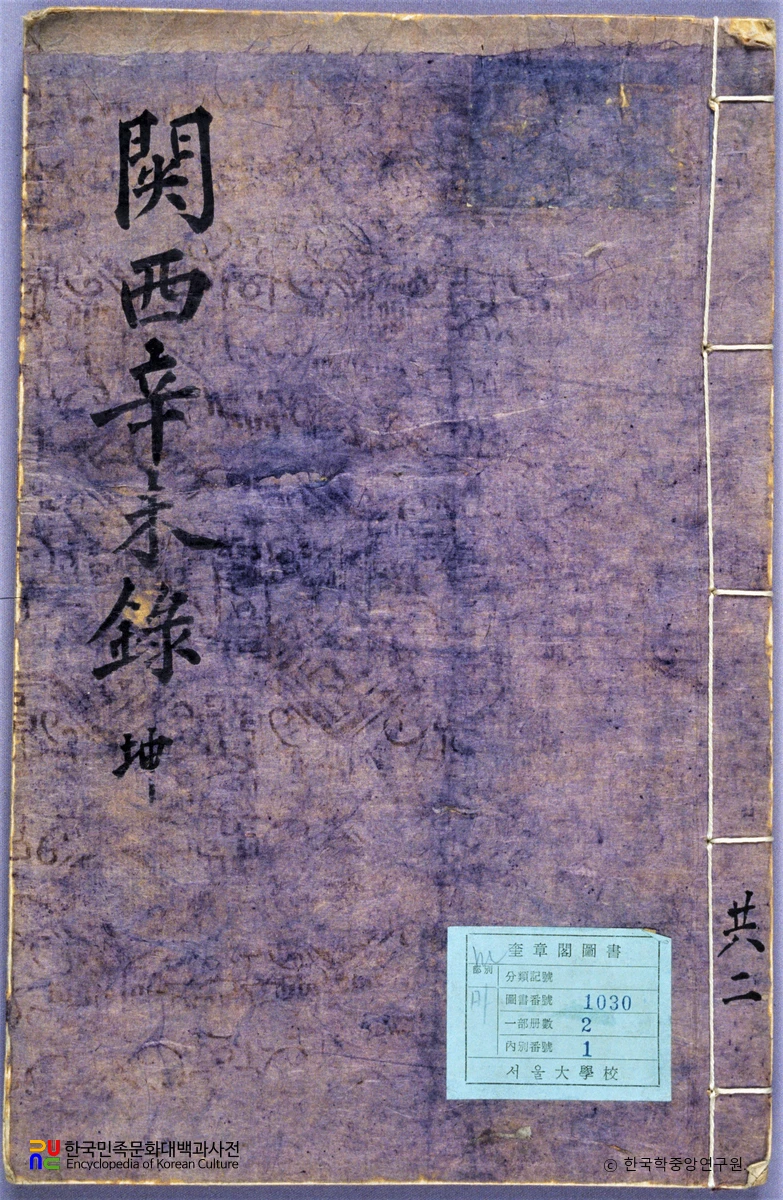 関西辛未錄 坤
共二
奎章閣圖書
部別
分類記號
圖書番號 1030
一部册數 2
內別番號 1
서울大學校
한국민족문화대백과사전
Encyclopedia of Korean Culture
© 한국학중앙연구원